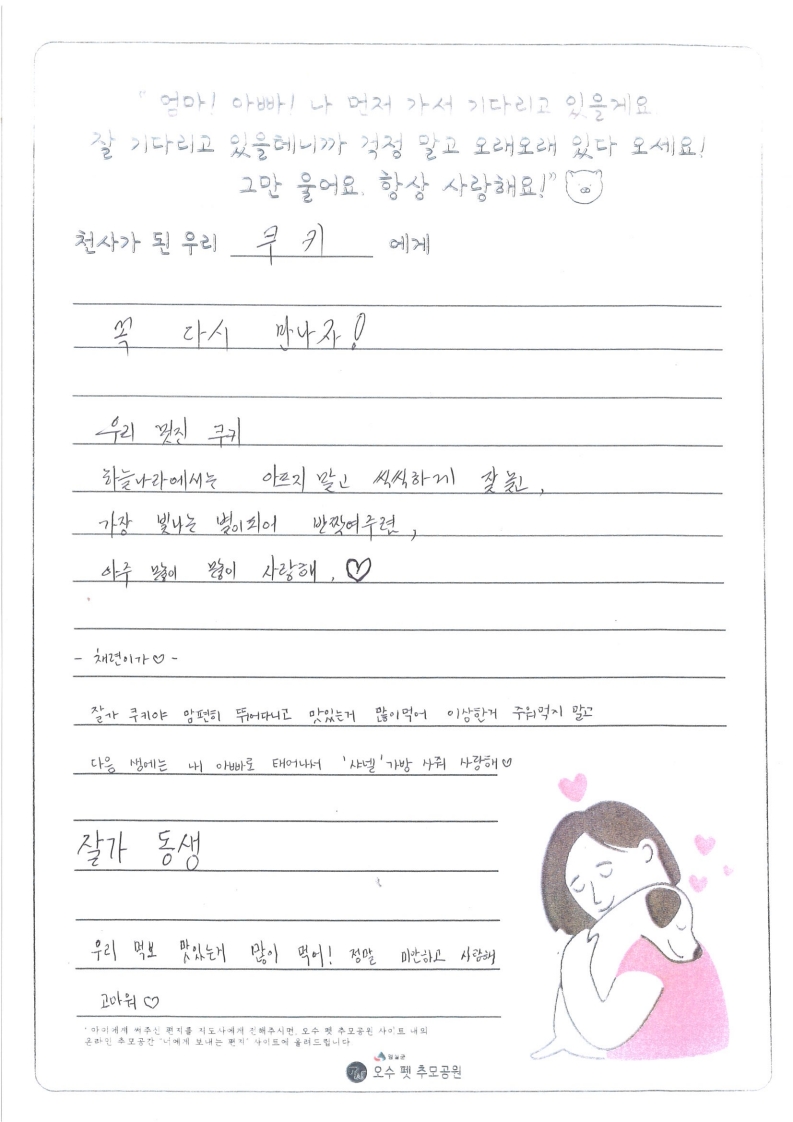 " 엄마! 아빠! 나 먼저 가서 기다리고 있을게요.
잘 기다리고 있을테니까 걱정 말고 오래오래 있다 오세요!
그만 울어요. 항상 사랑해요!"
천사가 된 우리 쿠키 에게
꼭 다시 만나자!
우리 멋진 쿠키
하늘나라에서는 아프지 말고 씩씩하게 잘 놀고,
가장 빛나는 별이되어 반짝여주련,
아주 많이 많이 사랑해. ♡
- 채련이가♡ -
잘가 쿠키야 맘편히 뛰어다니고 맛있는거 많이먹어 이상한거 주워먹지 말고
다음 생에는 내 아빠로 태어나서 '샤넬'가방 사줘 사랑해♡
잘가 동생
우리 먹보 맛있는거 많이 먹어! 정말 미안하고 사랑해
고마워 ♡
' 아이에게 써주신 편지를 지도사에게 전해주시면, 오수 펫 추모공원 사이트 내의
온라인 추모공간 '너에게 보내는 편지' 사이트에 올려드립니다
임실군
오수 펫 추모공원